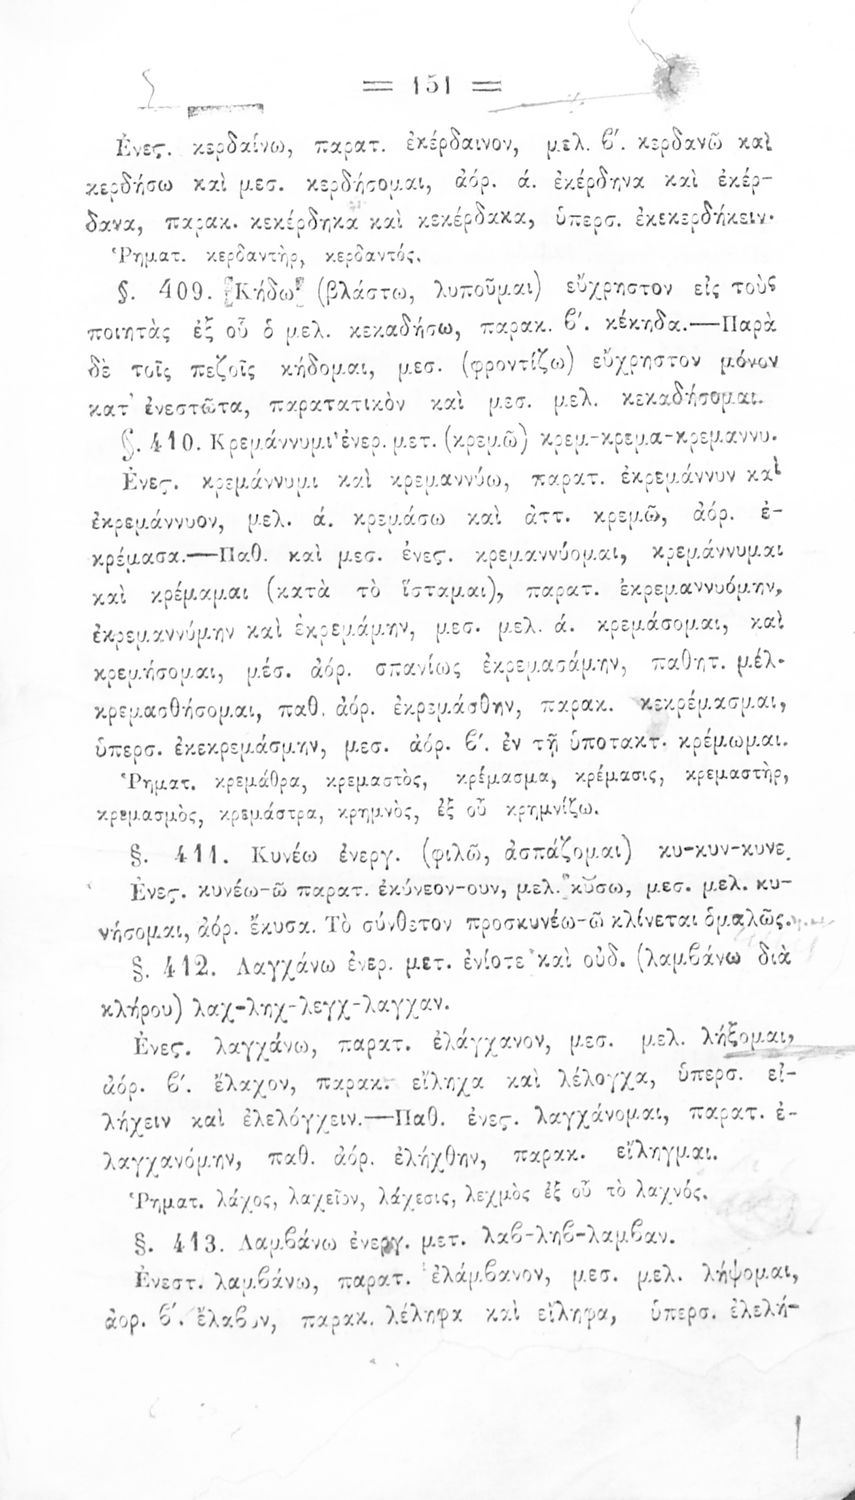 = 151 =
Ἐνεϛ. κερδαίνω, παρατ. ἐκέρδαινον, μελ. β΄. κερδανῶ καὶ
κερδήσω καὶ μεσ. κερδήσομαι, ἀόρ. ά. ἐκέρδηνα καὶ ἐκέρ-
δανα, παρακ. κεκέρδηκα καὶ κεκέρδακα, ὑπερσ. ἐκεκερδήκειν.
Ῥηματ. κερδαντὴρ, κερδαντός.
§. 409. Κήδω (βλάστω, λυποῦμαι) εὔχρηστον εἰς τοὺς
ποιητὰς ἐξ οὗ ὁ μελ. κεκαδήσω, παρακ. β΄. κέκηδα.—Παρὰ
δὲ τοῖς πεζοῖς κήδομαι, μεσ. (φροντίζω) εὔχρηστον μόνον
κατ' ἐνεστῶτα, παρατατικὸν καὶ μεσ. μελ. κεκαδήσομαι.
§. 410. Κρεμάννυμι ἐνερ. μετ. (κρεμῶ) κρεμ-κρεμα-κρεμαννυ.
Ἐνεϛ. κρεμάννυμι καὶ κρεμαννύω, παρατ. ἐκρεμάννυν καὶ
ἐκρεμάννυον, μελ. ά. κρεμάσω καὶ ἀττ. κρεμῶ, ἀόρ. ἐ-
κρέμασα.—Παθ. καὶ μεσ. ἐνεϛ. κρεμαννύομαι, κρεμάννυμαι
καὶ κρέμαμαι (κατὰ τὸ ἵσταμαι), παρατ. ἐκρεμαννυόμην,
ἐκρεμαννύμην καὶ ἐκρεμάμην, μεσ. μελ. ά. κρεμάσομαι, καὶ
κρεμήσομαι, μέσ. ἀόρ. σπανίως ἐκρεμασάμην, παθητ. μέλ.
κρεμασθήσομαι, παθ. ἀόρ. ἐκρεμάσθην, παρακ. κεκρέμασμαι,
ὑπερσ. ἐκεκρεμάσμην, μεσ. ἀόρ. β΄. ἐν τῇ ὑποτακτ. κρέμωμαι.
Ῥηματ. κρεμάθρα, κρεμαστὸς, κρέμασμα, κρέμασις, κρεμαστὴρ,
κρεμασμὸς, κρεμάστρα, κρημνὸς, ἐξ οὗ κρημνίζω.
§. 411. Κυνέω ἐνεργ. (φιλῶ, ἀσπάζομαι) κυ-κυν-κυνε.
Ἐνεϛ. κυνέω-ῶ παρατ. ἐκύνεον-ουν, μελ. κύσω, μεσ. μελ. κυ-
νήσομαι, ἀόρ. ἔκυσα. Τὸ σύνθετον προσκυνέω-ῶ κλίνεται ὁμαλῶς.
§. 412. Λαγχάνω ἐνερ. μετ. ἐνίοτε καὶ οὐδ. (λαμβάνω διὰ
κλήρου) λαχ-ληχ-λεγχ-λαγχαν.
Ἐνεϛ. λαγχάνω, παρατ. ἐλάγχανον, μεσ. μελ. λήξομαι,
ἀόρ. β΄. ἔλαχον, παρακ. εἴληχα καὶ λέλογχα, ὑπερσ. εἰ-
λήχειν καὶ ἐλελόγχειν.—Παθ. ἐνεϛ. λαγχάνομαι, παρατ. ἐ-
λαγχανόμην, παθ. ἀόρ. ἐλήχθην, παρακ. εἴληγμαι.
Ῥηματ. λάχος, λαχεῖον, λάχεσις, λεχμὸς ἐξ οὗ τὸ λαχνός.
§. 413. Λαμβάνω ἐνεργ. μετ. λαβ-ληβ-λαμβαν.
Ἐνεστ. λαμβάνω, παρατ. ἐλάμβανον, μεσ. μελ. λήψομαι,
ἀορ. β΄. ἔλαβον, παρακ. λέληφα καὶ εἴληφα, ὑπερσ. ἐλελή-